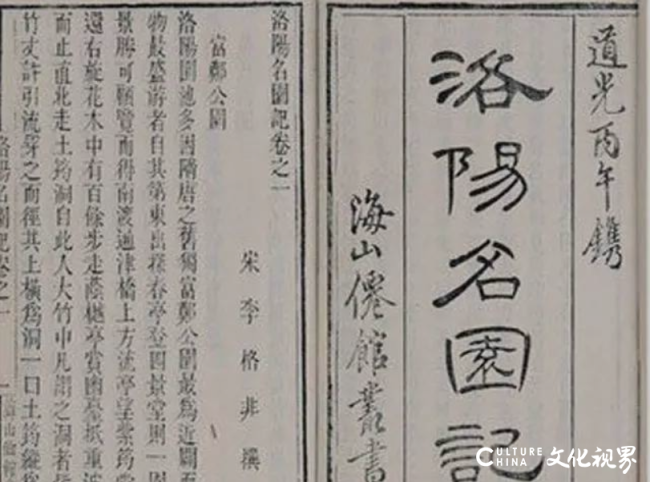 道光丙午鐫
洛陽名園記
海山僊館叢書
洛陽名園記卷之一
宋李格非撰
富鄭公園
洛陽園池多因隋唐之舊獨富鄭公園最爲近闢而
物最盛游者自其第東出探春亭登四景堂則一園
景勝可顧覽而得南渡通津橋上方流亭望紫筠堂
還右旋花木中有百餘步走蔭樾亭賞幽臺抵重波
而止直北走土筠洞自此入大竹中凡謂之洞者
竹丈許引流穿之而徑其上橫爲洞一曰土筠縱爲
洛陽名園記卷之一 一
CULTURE CHINA 文化视界